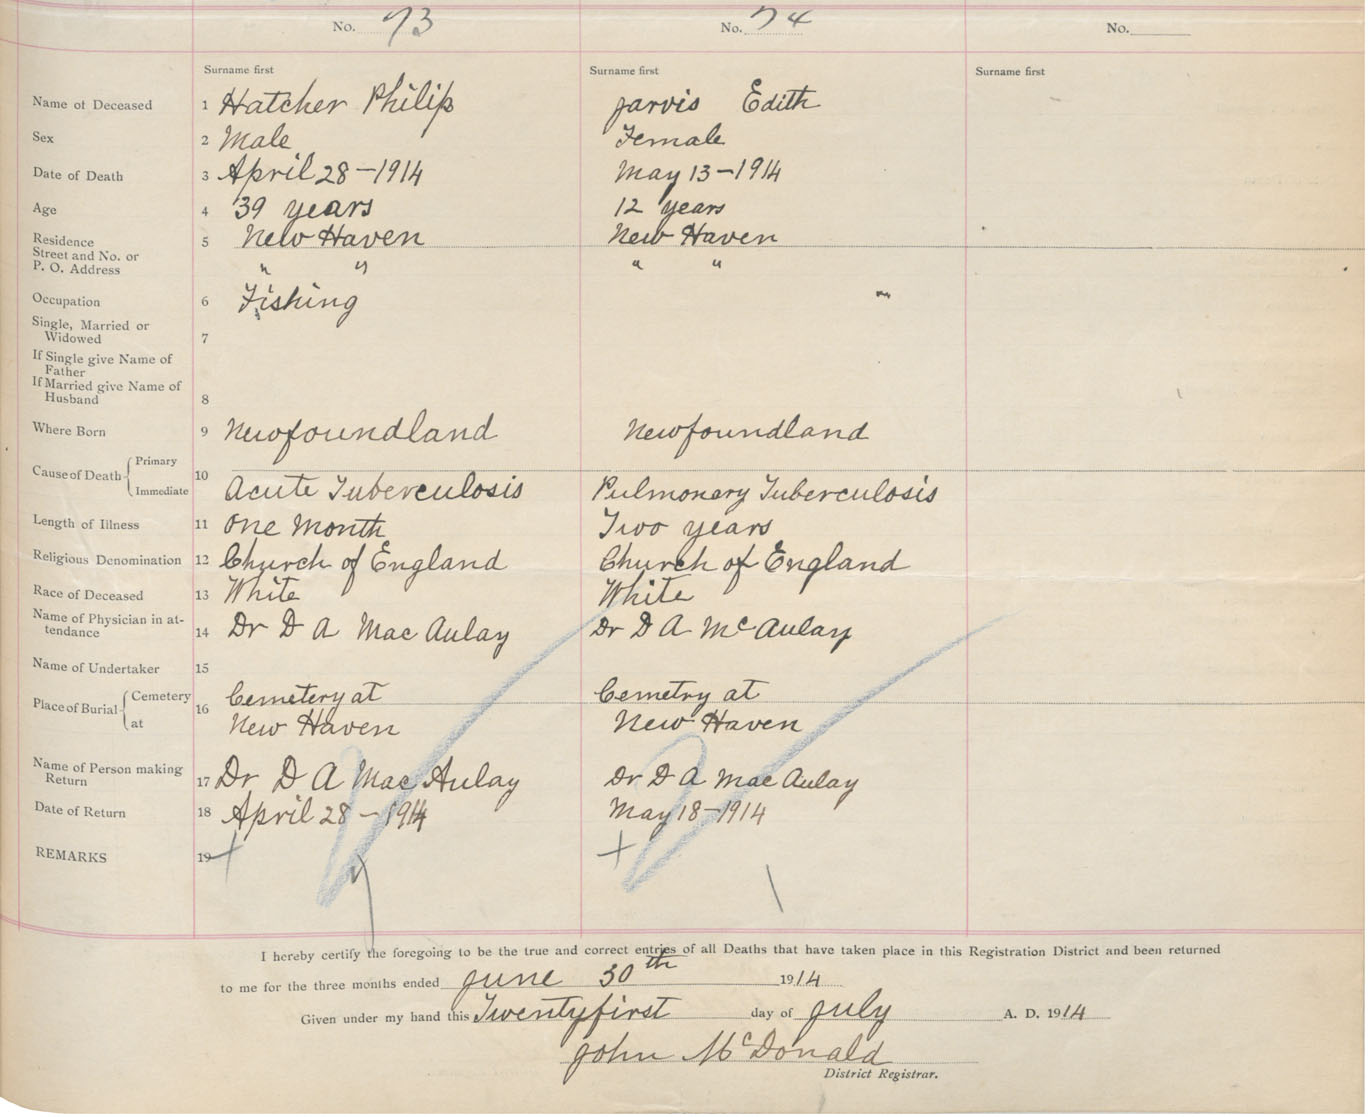 No. 73 No. 74 No.
Surname first Surname first Surname first
Name of Deceased 1 Hatcher Philip Jarvis Edith
Sex 2 Male Female
Date of Death 3 April 28-1914 May 13-1914
Age 4 39 years 12 years
Residence
Street and No. or
P. O. Address
5 New Haven New Haven
" " " "
Occupation 6 Fishing
Single, Married or
Widowed 7
If Single give Name of
Father
If Married give Name of
Husband 8
Where Born 9 Newfoundland Newfoundland
Cause of Death Primary
Immediate
10 Acute Tuberculosis Pulmonary Tuberculosis
Length of Illness 11 One Month Two years
Religious Denomination 12 Church of England Church of England
Race of Deceased 13 White White
Name of Physician in at-
tendance 14 Dr D A Mac Aulay Dr D A Mc Aulay
Name of Undertaker 15
Place of Burial Cemetery
at
16 Cemetery at Cemetry at
New Haven New Haven
Name of Person making
Return 17 Dr D A Mac Aulay Dr D A Mac Aulay
Date of Return 18 April 28-1914 May 18-1914
REMARKS 19
I hereby certify the foregoing to be the true and correct entries of all Deaths that have taken place in this Registration District and been returned
to me for the three months ended June 30th 1914
Given under my hand this Twentyfirst day of July A. D. 1914
John McDonald
District Registrar.